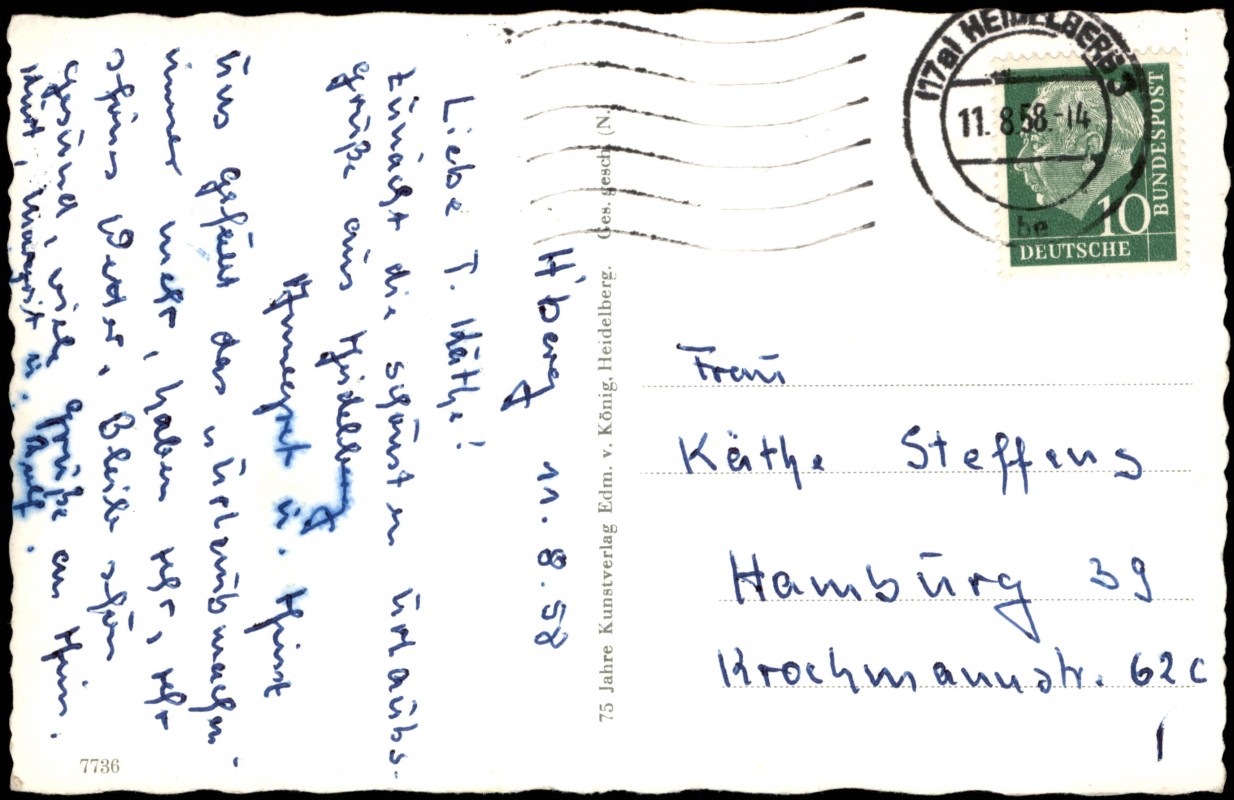 H'berg 11.8.58
Liebe T. Käthe!
Zunächt die schönsten Urlaubs-
grüße aus Heidelberg
Annegret u. Horst
Uns gefällt das Urlaubmachen
immer mehr, haben sehr, sehr
schönes Wetter. Bleib schön
gesund, viele Grüße an Hein.
Kurt, Margrit u. Ralf.
7736
75 Jahre Kunstverlag Edm. v. König, Heidelberg. Ges. gesch. (N.)
(17a) HEIDELBERG 3
11.8.58.-14
be
DEUTSCHE
BUNDESPOST
10
Frau
Käthe Steffens
Hamburg 39
Krochmannstr. 62c